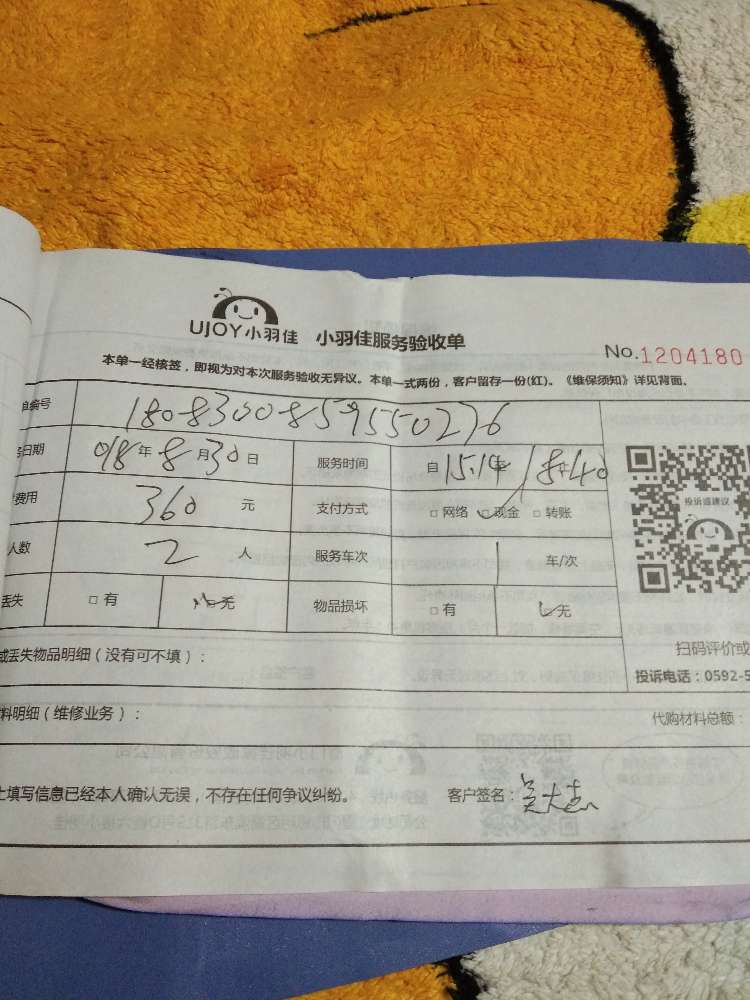 UJOY小羽佳 小羽佳服务验收单
No.1204180
本单一经核签，即视为对本次服务验收无异议。本单一式两份，客户留存一份(红)。《维保须知》详见背面。
编号 1808300859550276
日期 018年8月30日 服务时间 自15:14 18:40
费用 360元 支付方式 □网络 ✓现金 □转账
人数 2人 服务车次 1车/次
丢失 □有 ✓无 物品损坏 □有 ✓无
投诉或建议
或丢失物品明细（没有可不填）：
扫码评价或
投诉电话：0592-5
料明细（维修业务）：
代购材料总额：
上填写信息已经本人确认无误，不存在任何争议纠纷。 客户签名：吴大志